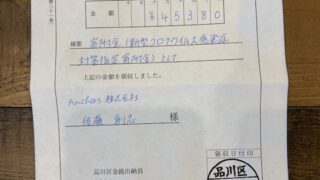 金額
¥45380
摘要 寄附金(新型コロナウイルス感染症
対策指定寄附金)として
上記の金額を領収しました。
Anchors 株式会社
佐藤 創志 様
領収日付印
品川区
品川区金銭出納員